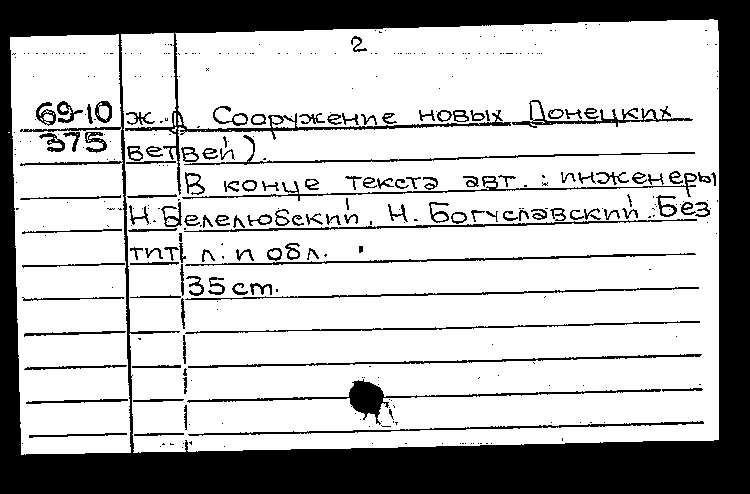 2
69-10 ж. д. Сооружение новых Донецких
375 ветвей).
В конце текста авт.: инженеры
Н. Белелюбский, Н. Богуславский. Без
тит. л. и обл.
35 cm.